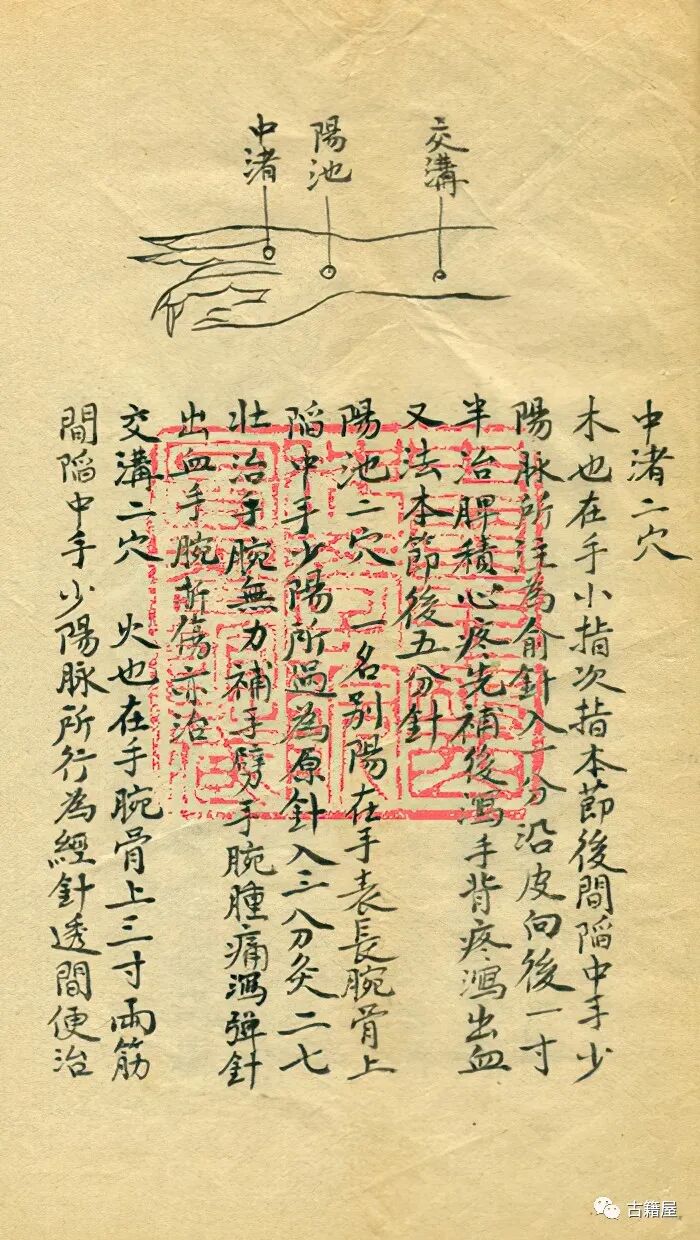 中渚
陽池
交溝
中渚二穴
木也在手小指次指本節後間陷中手少
陽脉所注為俞針入一分沿皮向後一寸
半治脾積心疼先補後瀉手背疼瀉出血
又法本節後五分針
陽池二穴 一名别陽在手表長腕骨上
陷中手少陽所過為原針入三八分灸二七
壮治手腕無力補手臂手腕腫痛瀉彈針
出血手腕折傷亦治
交溝二穴 火也在手腕骨上三寸兩筋
間陷中手少陽脉所行為經針透間便治
古籍屋